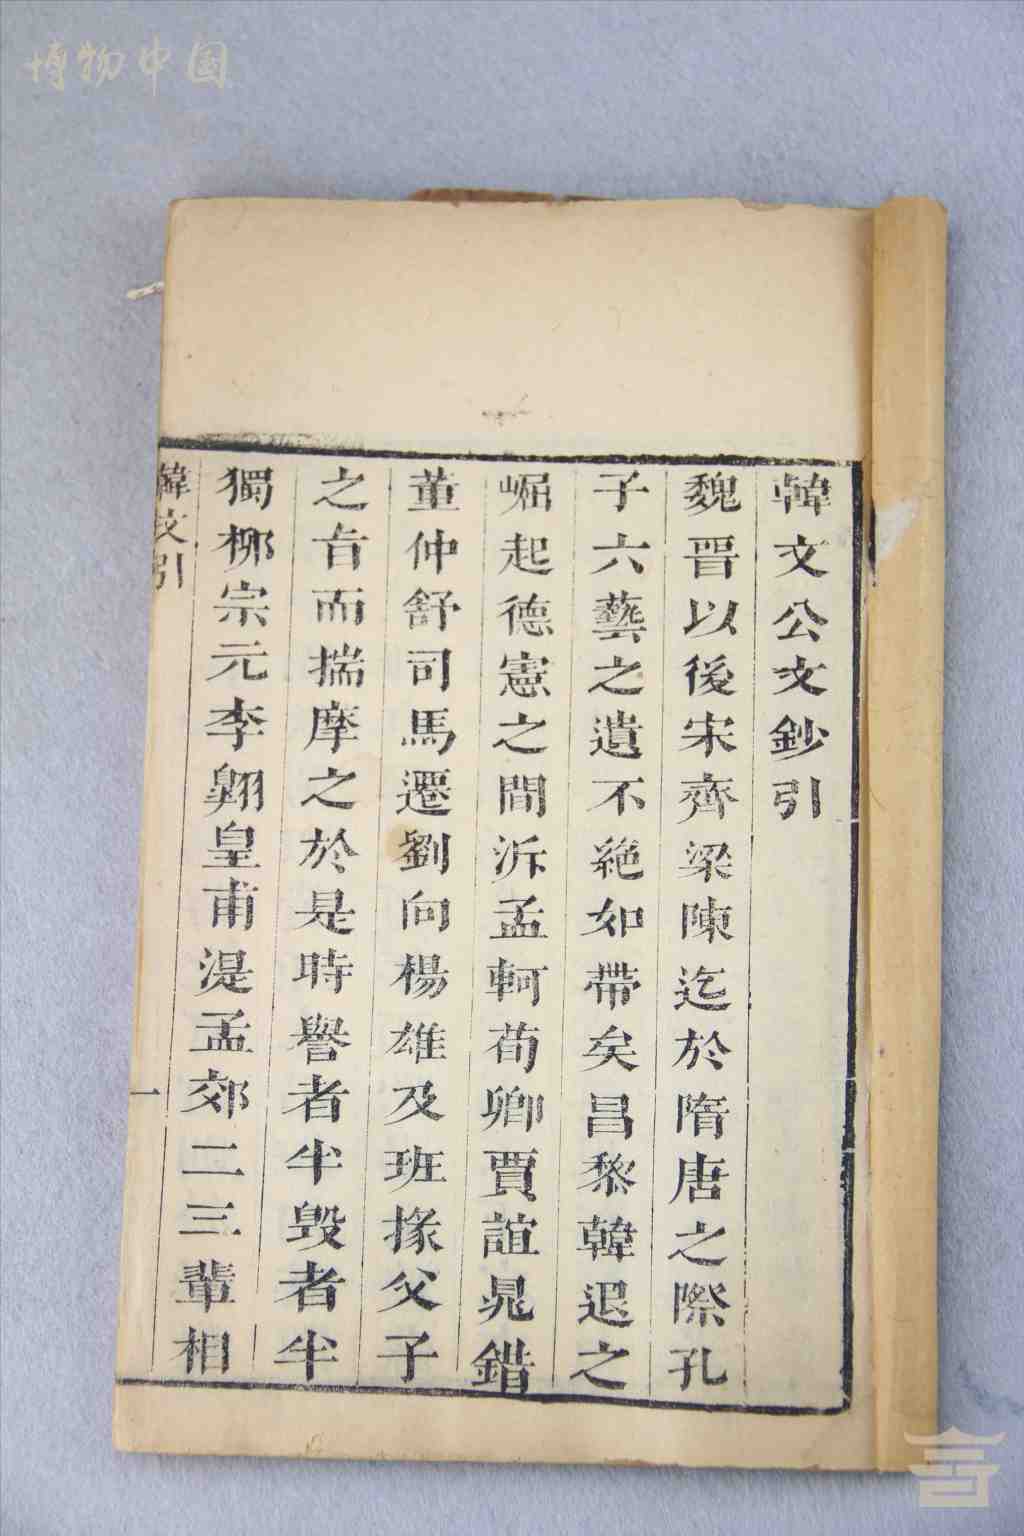 博物中国
韓文公文鈔引
魏晋以後宋齊梁陳迄於隋唐之際孔
子六藝之遺不絕如帶矣昌黎韓退之
崛起德憲之間泝孟軻荀卿賈誼晁錯
董仲舒司馬遷劉向楊雄及班掾父子
之旨而揣摩之於是時譽者半毀者半
獨柳宗元李翺皇甫湜孟郊二三輩相
韓文引
一